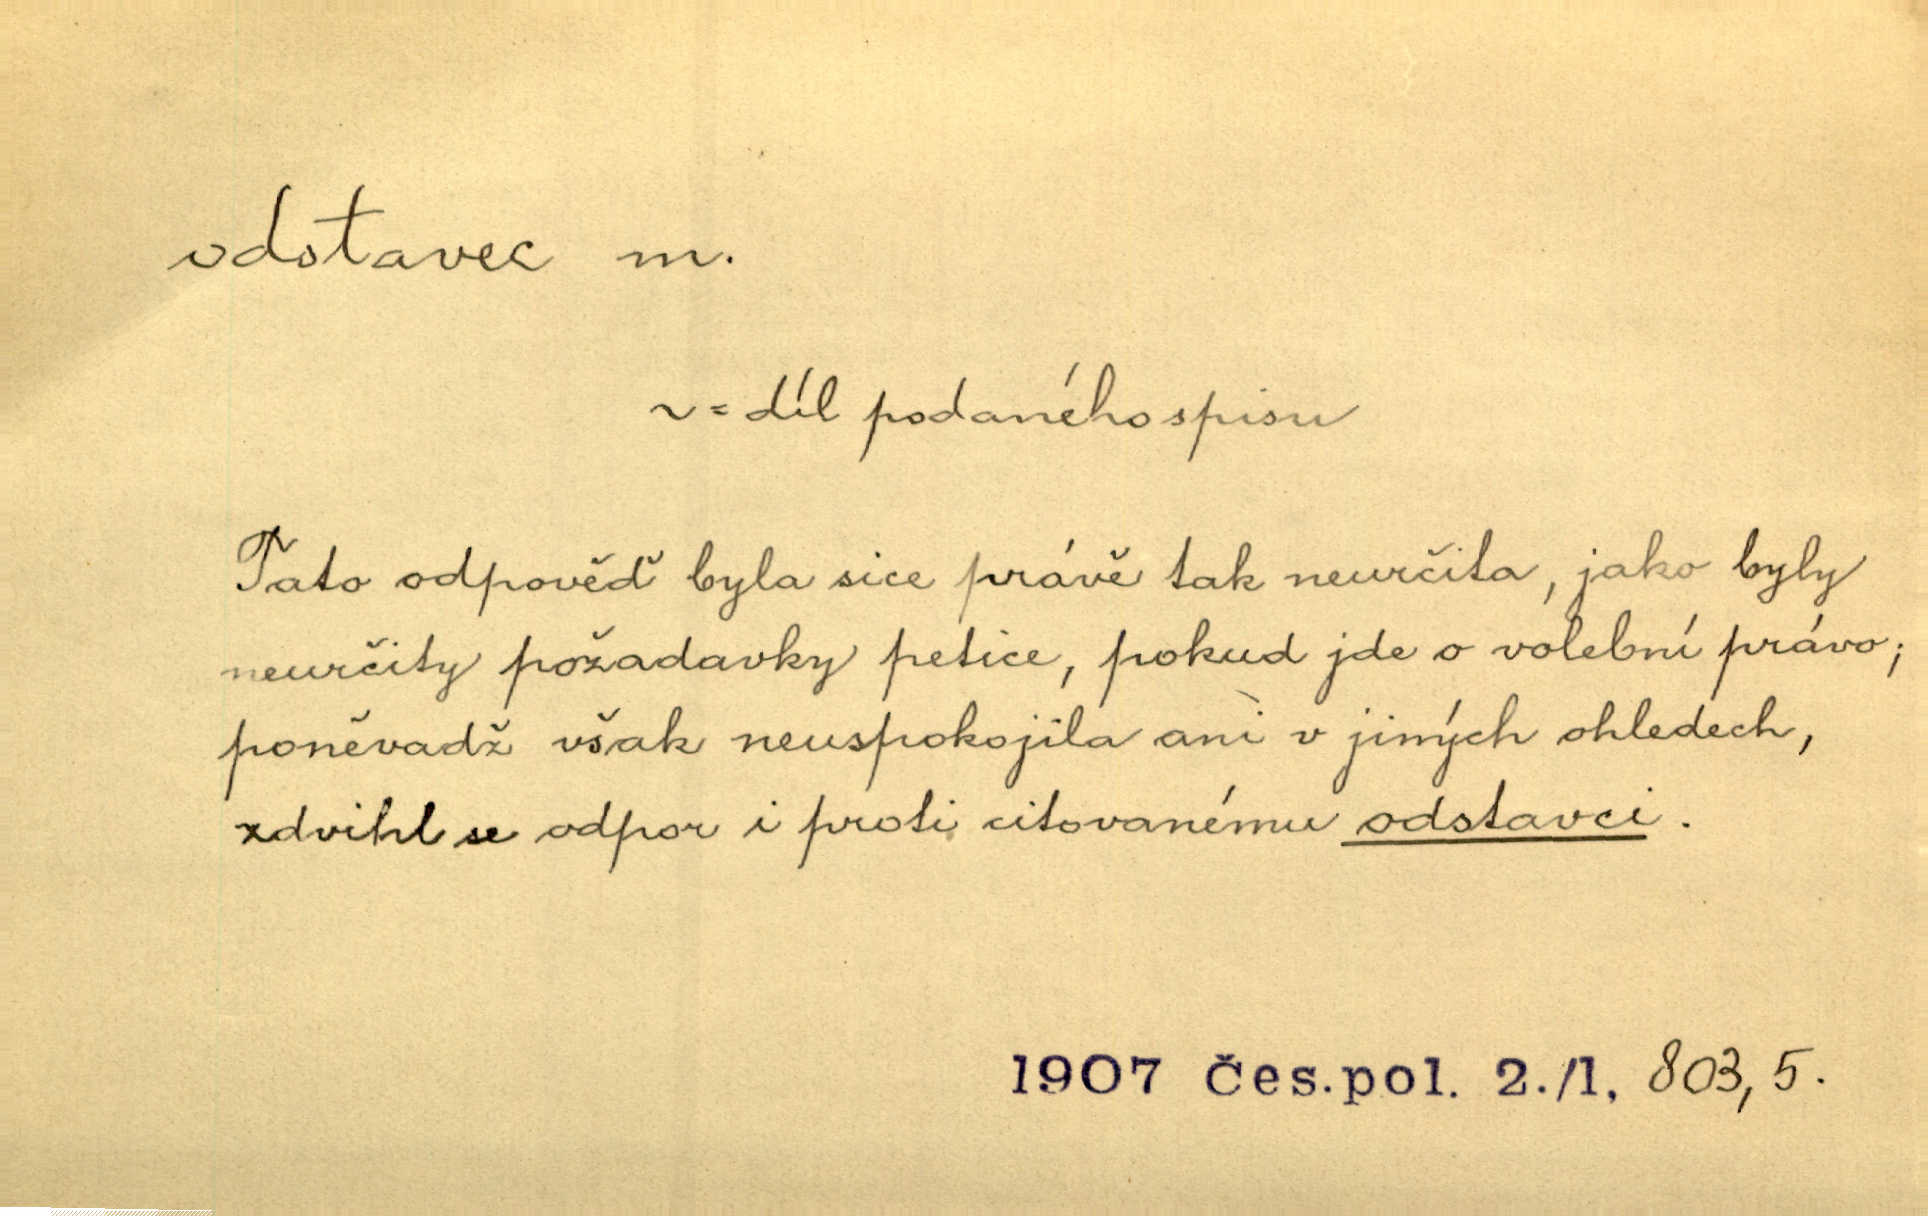 odstavec m.
~ = díl podaného spisu
Tato odpověď byla sice právě tak neurčita, jako byly
neurčity požadavky petice, pokud jde o volební právo;
poněvadž však neuspokojila ani v jiných ohledech,
zdvihl se odpor i proti citovanému odstavci.
1907 Čes.pol. 2./1, 803, 5.